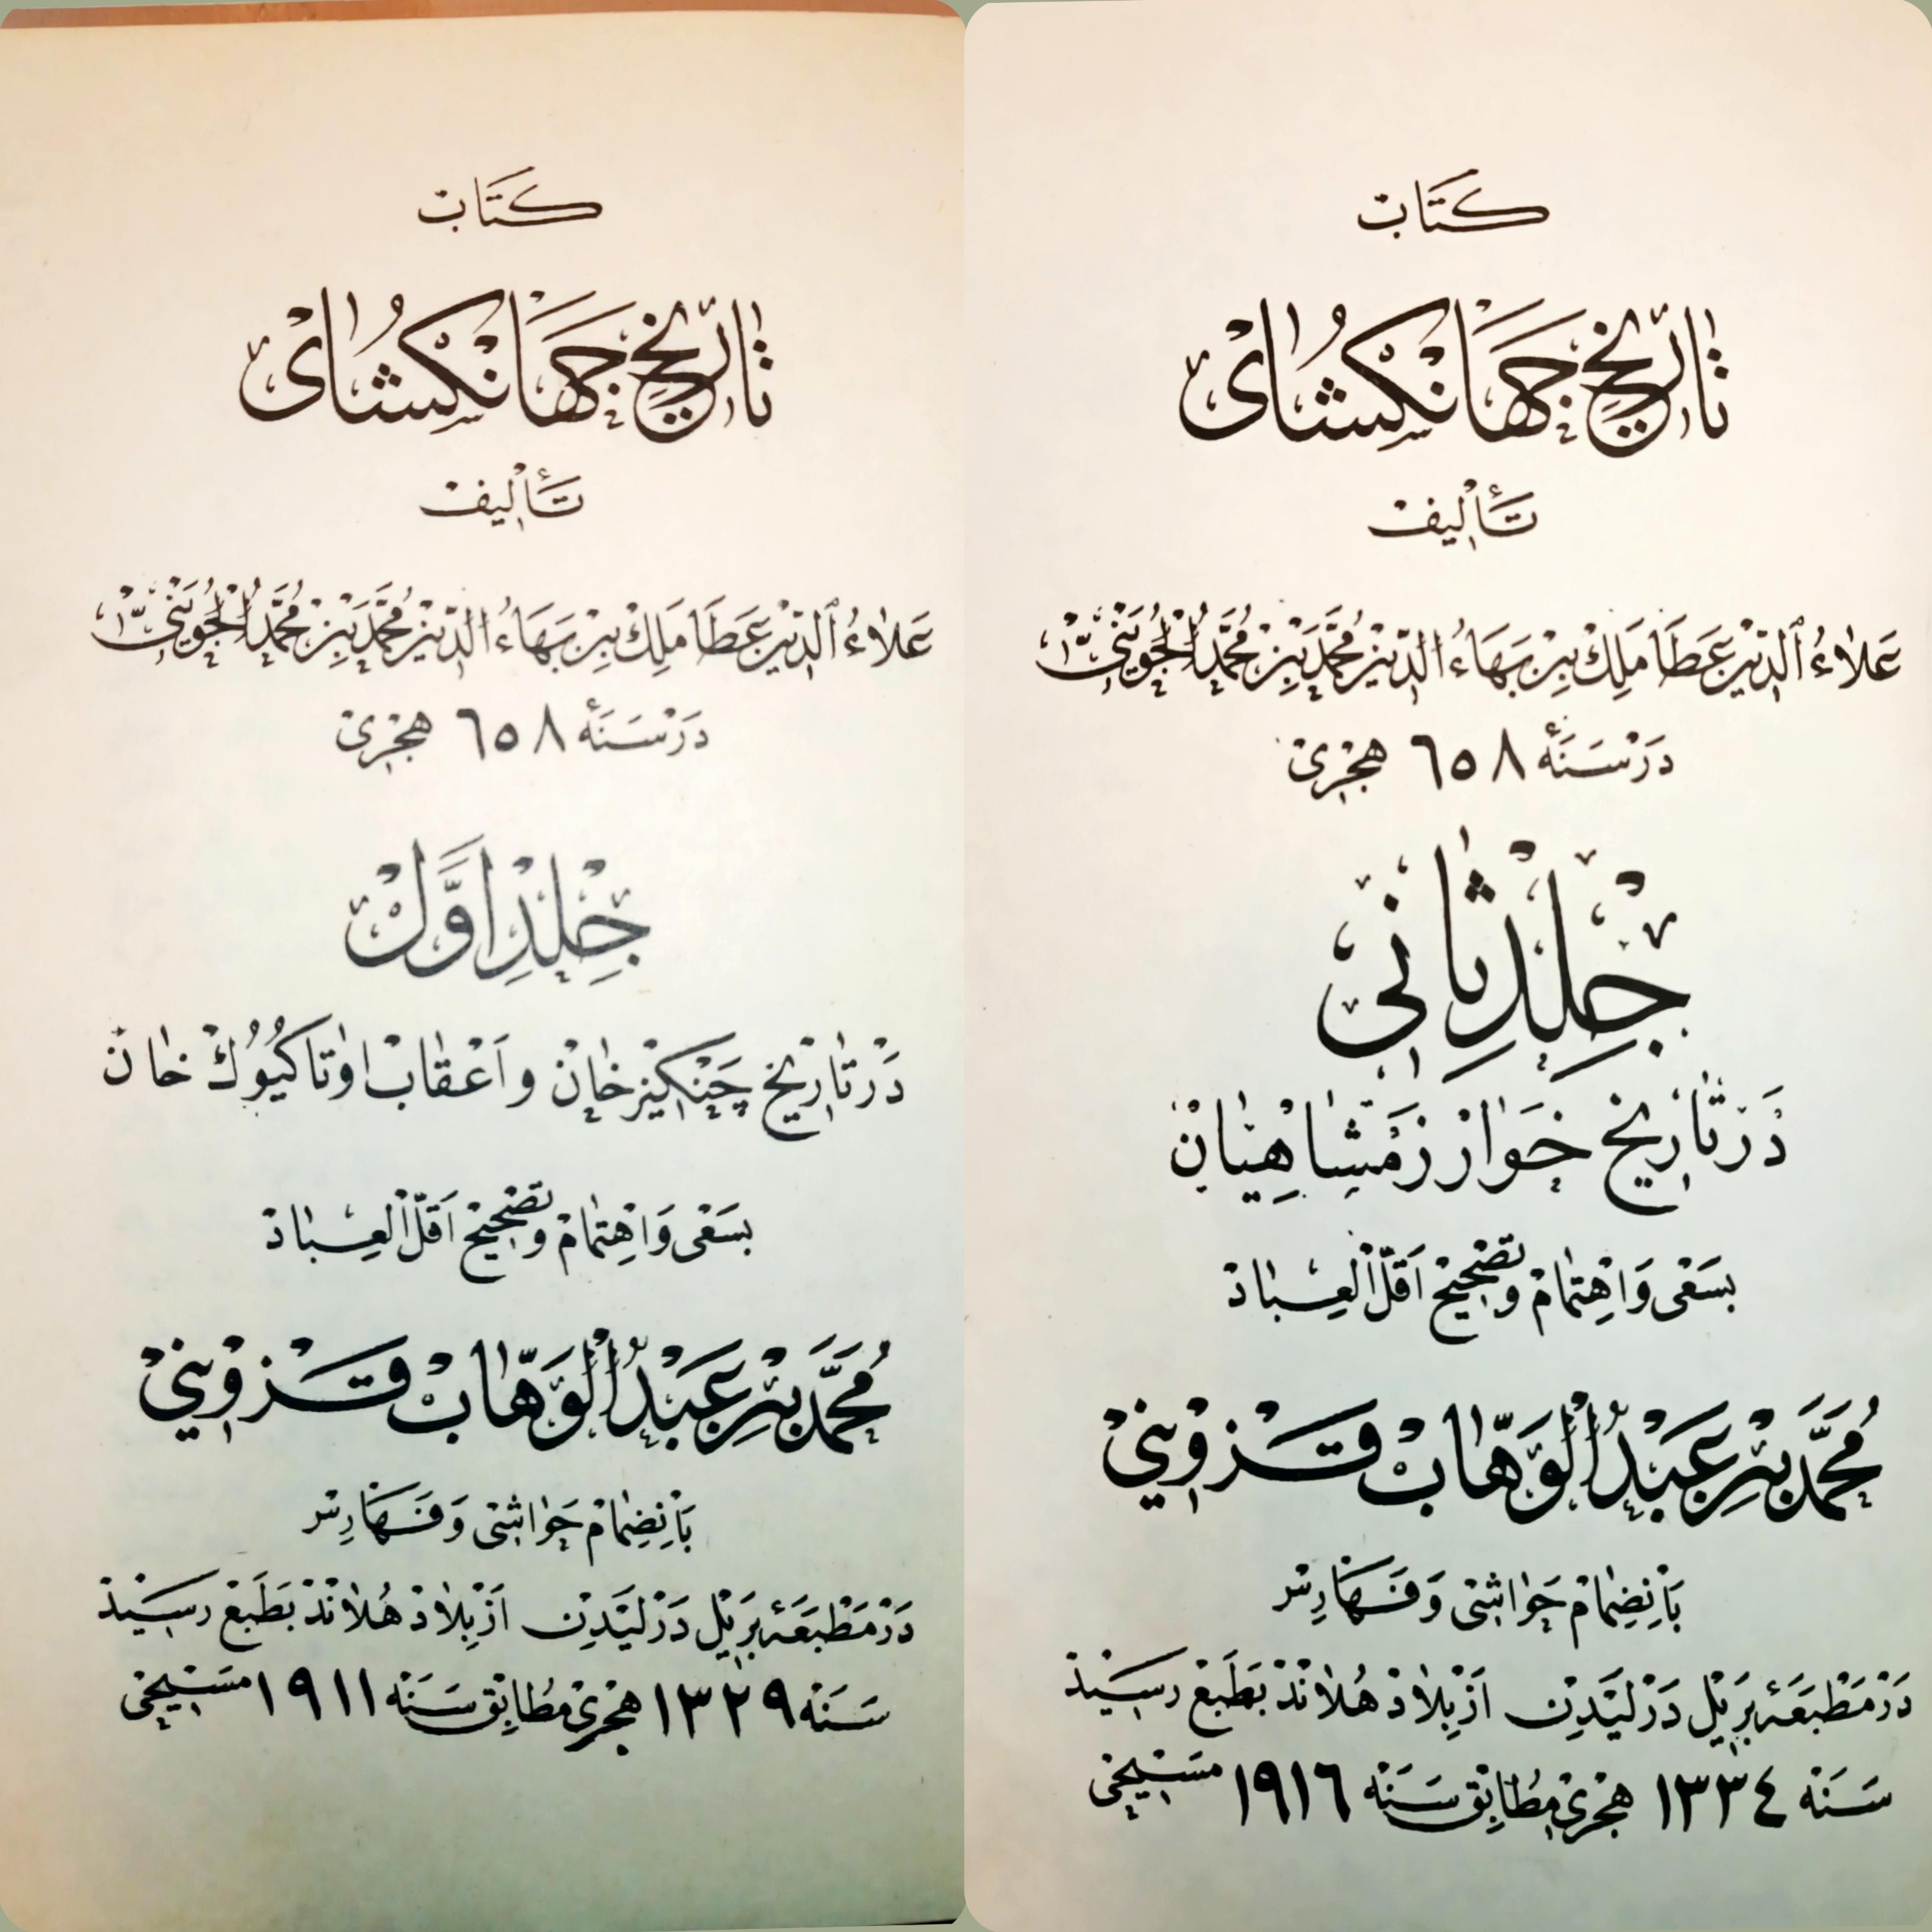 كتاب
تاريخ جهانكشاى
تأليف
علاء الدين عطا ملك بن بهاء الدين محمد بن محمد الجوينى
در سنهٔ ٦٥٨ هجرى
جلد اول
در تاريخ چنكيز خان و اعقاب او تا كيوك خان
بسعى و اهتمام و تصحيح اقل العباد
محمد بن عبد الوهاب قزوينى
بانضمام حواشى و فهارس
در مطبعهٔ بريل در ليدن از بلاد هلاند بطبع رسيد
سنه ١٣٢٩ هجرى مطابق سنه ١٩١١ مسيحى
كتاب
تاريخ جهانكشاى
تأليف
علاء الدين عطا ملك بن بهاء الدين محمد بن محمد الجوينى
در سنهٔ ٦٥٨ هجرى
جلد ثانى
در تاريخ خوارزمشاهيان
بسعى و اهتمام و تصحيح اقل العباد
محمد بن عبد الوهاب قزوينى
بانضمام حواشى و فهارس
در مطبعهٔ بريل در ليدن از بلاد هلاند بطبع رسيد
سنه ١٣٣٤ هجرى مطابق سنه ١٩١٦ مسيحى